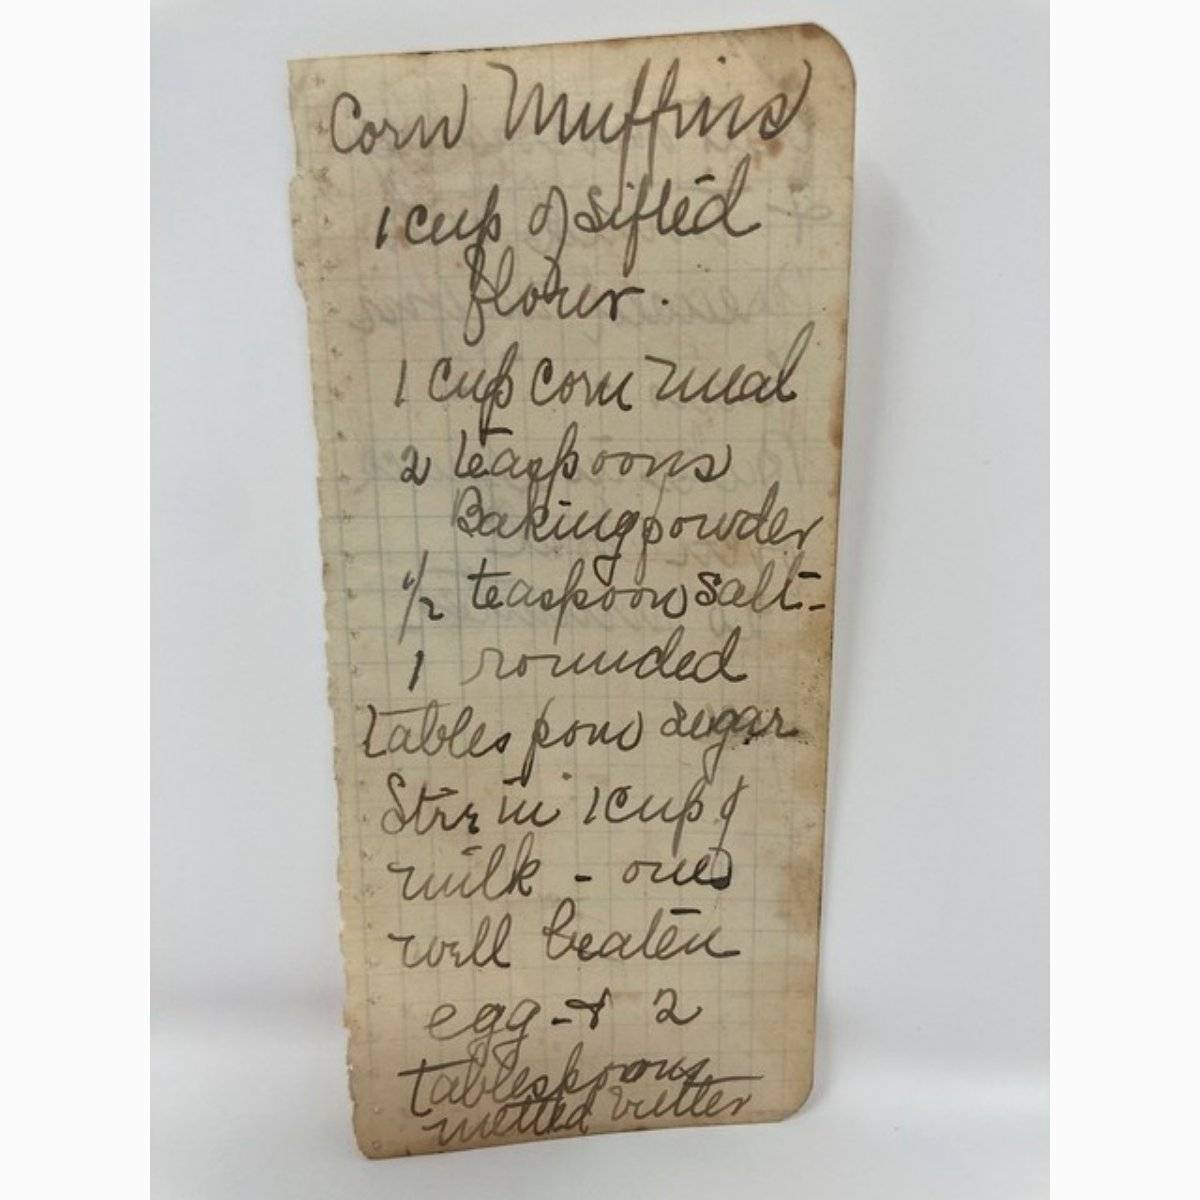 Corn Muffins
1 cup of sifted
flour.
1 cup corn meal
2 teaspoons
Baking powder
1/2 teaspoon salt-
1 rounded
tablespoon sugar
Stir in 1 cup of
milk - one
well beaten
egg - & 2
tablespoons
melted butter